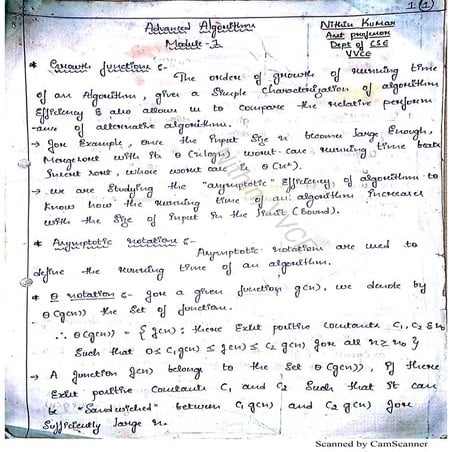 1(1)
Advanced Algorithm
Module-1
Nithin Kumar
Asst professor
Dept of CSE
VVCE
* Growth functions :-
The order of growth of running time
of an Algorithm, gives a Simple characterization of algorithm
Efficiency & also allows us to compare the relative perform
-ance of alternative algorithm.
→ For Example, once the input Size n becomes large Enough,
Merge sort with its θ(n logn) worst-case running time beats
Insert sort, whose worst case is θ(n²).
→ we are Studying the "asymptotic" Efficiency of algorithm to
Know how the running time of an algorithm increases
with the Size of input in the limit (Bound).
* Asymptotic notations :-
Asymptotic notations are used to
define the running time of an algorithm.
* θ notation :- for a given function g(n), we denote by
θ(g(n)) the Set of function.
∴ θ(g(n)) = { f(n) : there Exist positive constants C₁, C₂ & n₀
Such that 0 ≤ C₁g(n) ≤ f(n) ≤ C₂ g(n) for all n ≥ n₀ }
→ A function f(n) belong to the Set θ(g(n)), if there
Exist positive constants C₁ and C₂ Such that it can
be "Sandwiched" between C₁ g(n) and C₂ g(n) for
Sufficiently large n.
Scanned by CamScanner